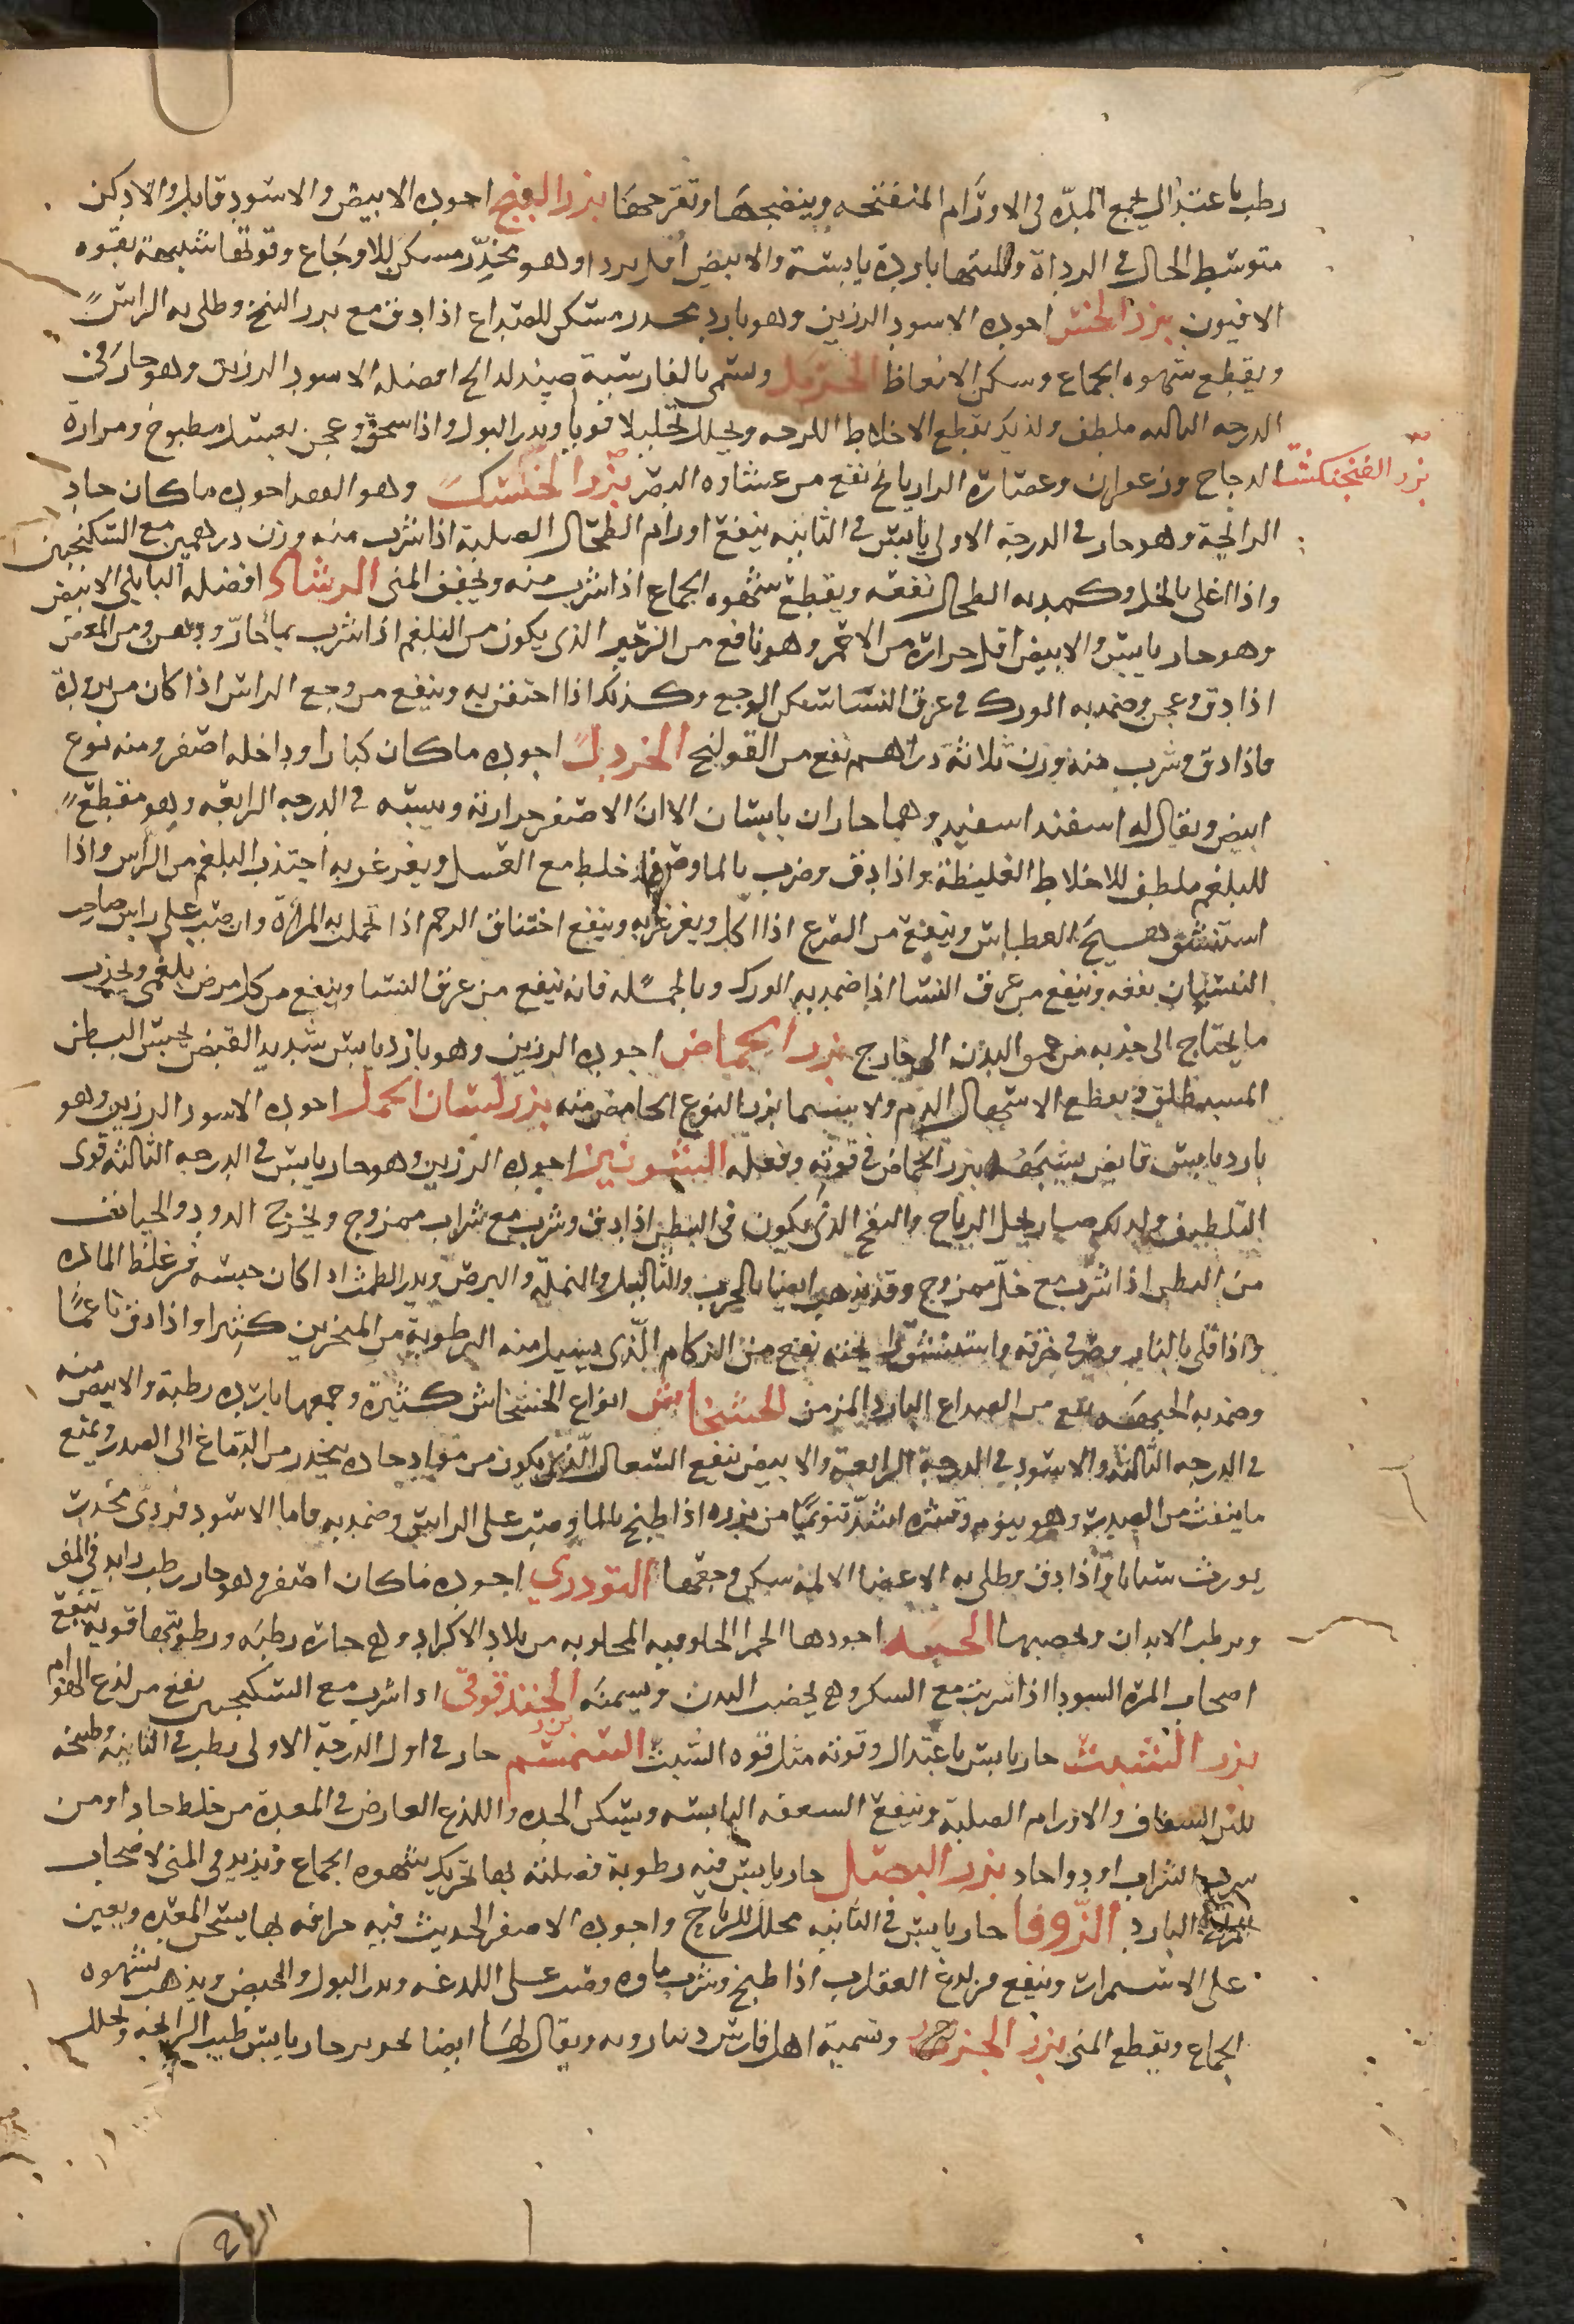 رطب باعتدال يجمع المدّه في الاورام المنفتحه وينضجها وتقرحها بزر البنج اجوده الابيض والاسود قاتل والادكن
متوسط الحال في الرداة وكلها باردة يابسة والابيض اقل بردا وهو مخدّر مسكن للاوجاع وقوتها شبيهة بقوه
الافيون بزر الخس اجوده الاسود الرزين وهو بارد مخدر مسكن للصداع اذا دق مع بزر البنج وطلي به الراس
ويقطع شهوه الجماع وسكن الانعاظ الحرمل وسمى بالفارسية افضله الاسود الرزين وهو حار في
الدرجه الثالثه ملطف ولذلك يقطع الاخلاط اللزجه ويحلل تحليلا قويا ويدر البول واذا سحق وعجن بعسل مطبوخ ومرارة
بزر الفنجنكشت
الدجاج وزعفران وعصارة الرازيانج نفع من غشاوه البصر بزر الخسك وهو الفقد اجوده ما كان حاد
الرائحة وهو حار في الدرجة الاولى يابس في الثانيه ينفع اورام الطحال الصلبة اذا شرب منه وزن درهمين مع السكنجبين
واذا اغلي بالخل وكمد به الطحال نفعه ويقطع شهوه الجماع اذا شرب منه ويجفف المني الرشاد افضله البابلي الابيض
وهو حار يابس والابيض اقل حرارة من الاحمر وهو نافع من الزحير الذي يكون من البلغم اذا شرب بماء حارّ ومن المغص
اذا دق وعجن وضمد به الورك في عرق النسا سكن الوجع وكذلك اذا احتقن به وينفع من وجع الراس اذا كان من برودة
فاذا دق وشرب منه وزن ثلاثة دراهم نفع من القولنج الخردل اجوده ما كان كبارا وداخله اصفر ومنه نوع
ابيض ويقال له اسفند اسفيد وهما حاران يابسان الا ان الاصفر حرارته ويبسه في الدرجه الرابعه وهو مقطع
للبلغم ملطف للاخلاط الغليظة واذا دق وضرب بالماء وصفي وخلط مع العسل ويغرغر به اجتذب البلغم من الراس واذا
استنشق هيج العطاس وينفع من الصرع اذا اكل ويغرغر به وينفع اختناق الرحم اذا تحملت به المرأة وان صب على راس صاحب
النسيان نفعه وينفع من عرق النسا اذا ضمد به الورك وبالجملة فانه ينفع من عرق النسا وينفع من كل مرض بلغمي ويجذب
ما يحتاج الى جذبه من عمق البدن الى خارج بزر الحماض اجوده الرزين وهو بارد يابس شديد القبض يحبس البطن
ويقطع الاسهال الدم ولا سيما بزر النوع الحامض منه بزر لسان الحمل اجوده الاسود الرزين وهو
بارد يابس قابض يشبه بزر الحماض في قوته وفعله الشونيز اجوده الرزين وهو حار يابس في الدرجه الثالثه قوى
التلطيف ولذلك صار يحل الرياح والنفخ الذى يكون في البطن اذا دق وشرب مع شراب ممزوج ويخرج الدود والحيات
من البطن اذا شرب مع خلّ ممزوج وقد يذهب ايضا بالجرب والثآليل والنملة والبرص ويدر الطمث اذا كان حبسه من غلظ الماده
واذا قلي بالنار وصرّ في خرقه واستنشق نفع من الزكام الّذى يسيل منه الرطوبة من المنخرين كثيرا واذا دق ناعما
وضمد به الجبهه نفع من الصداع البارد المزمن الخشخاش انواع الخشخاش كثيرة وجميعها باردة رطبة والابيض منه
في الدرجه الثالثه والاسود في الدرجة الرابعة والابيض ينفع السعال الّذي يكون من مواد حاده ينحدر من الدماغ الى الصدر ويمنع
ما ينفث من الصدر وهو ينوم وقشره اشدّ تنويما من بزره اذا طبخ بالماء وصب على الراس وضمد به فاما الاسود فردي مخدر
يورث سباتا واذا دق وطلي به الاعضا الالمه سكن وجعها التودري اجوده ما كان اصفر وهو حار رطب زايد في المني
ويرطب الابدان ويخصبها الحبه اجودها الحمرا المجلوبه من بلاد الاكراد وهي حارة رطبه ورطوبتها قويه تنفع
اصحاب المرة السودا اذا شربت مع السكر وهي يخصب البدن ويسمنه الحندقوقى اذا شرب مع السكنجبين نفع من لذع الهوام
بزر الشبث حار يابس باعتدال وقوته مثل قوه الشبث بزر السمسم حار في اول الدرجة الاولى رطب في الثانية وطبيخه
يلين السعال والاورام الصلبة وينفع السعفه اليابسه ويسكن الحده واللذع العارض في المعدة من خلط حاد او من
شرب الشراب او دوا حاد بزر البصل حار يابس فيه رطوبة فضلية بها تحرك شهوه الجماع ويزيد في المني لاصحاب
المزاج البارد الزّوفا حار يابس في الثانيه محلل للرياح واجوده الاصفر الحديث فيه حرافه بها يسخن المعده ويعين
على الاستمراء وينفع من لدغ العقارب اذا طبخ وشرب ماوه وصب على اللدغه ويدر البول والحيض ويذهب شهوه
الجماع ويقطع المني بزر الجزر وتسميه اهل فارس ويقال لها ايضا حار يابس طيب الرائحه ويحلل